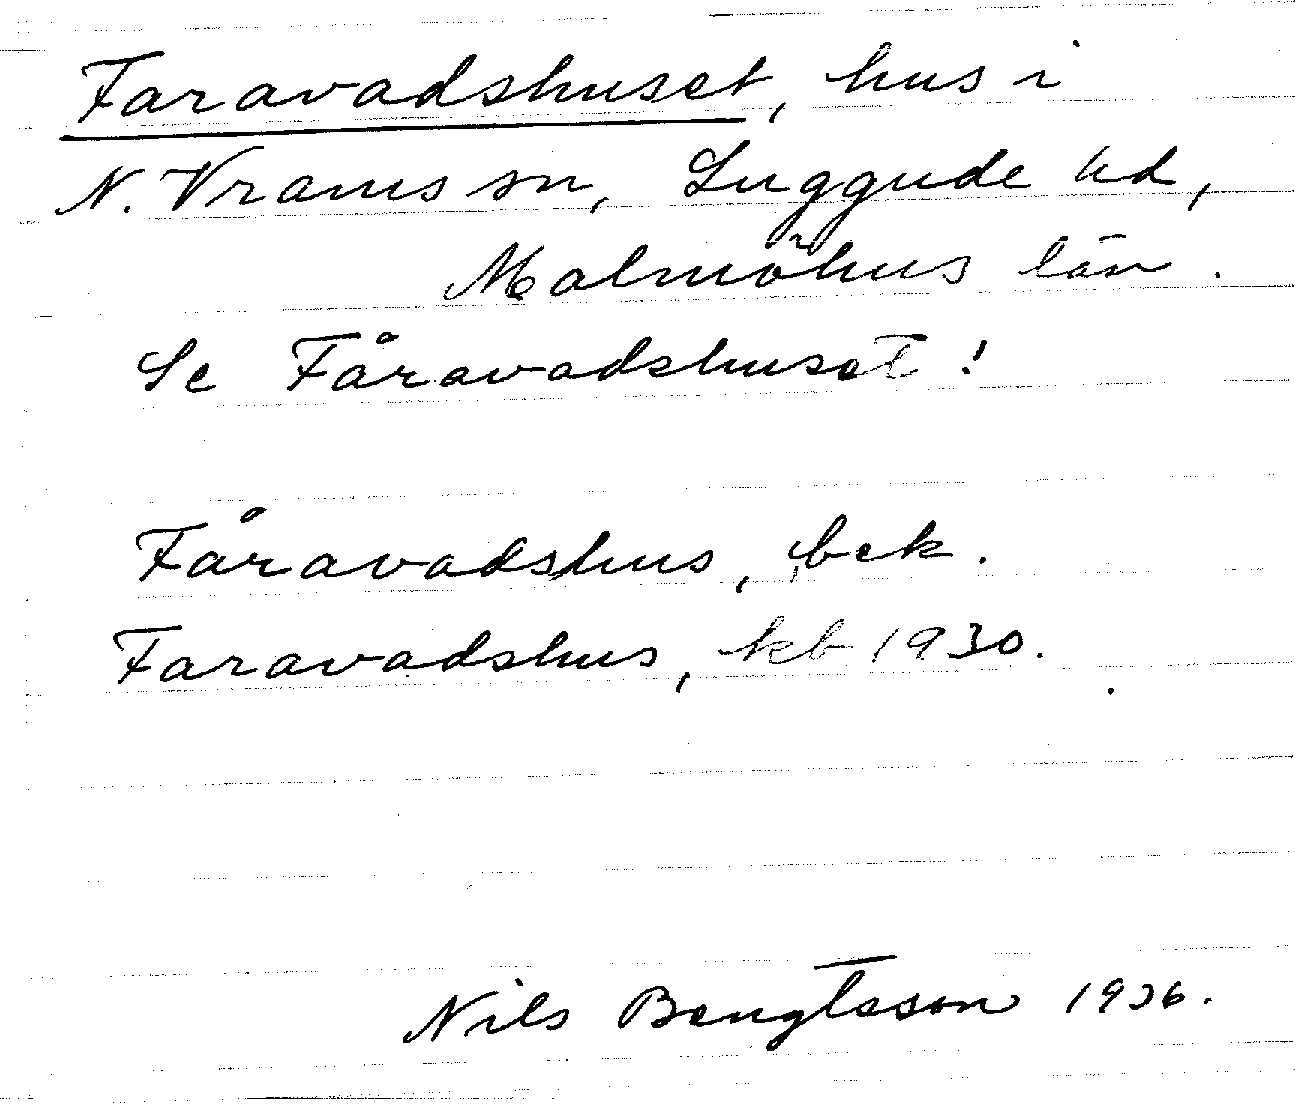 Faravadshuset, hus i
N. Vrams sn, Luggude hd,
Malmöhus län.
Se Fåravadshuset!
Fåravadshus, bek.
Faravadshus, kb 1930.
Nils Bengtsson 1936.